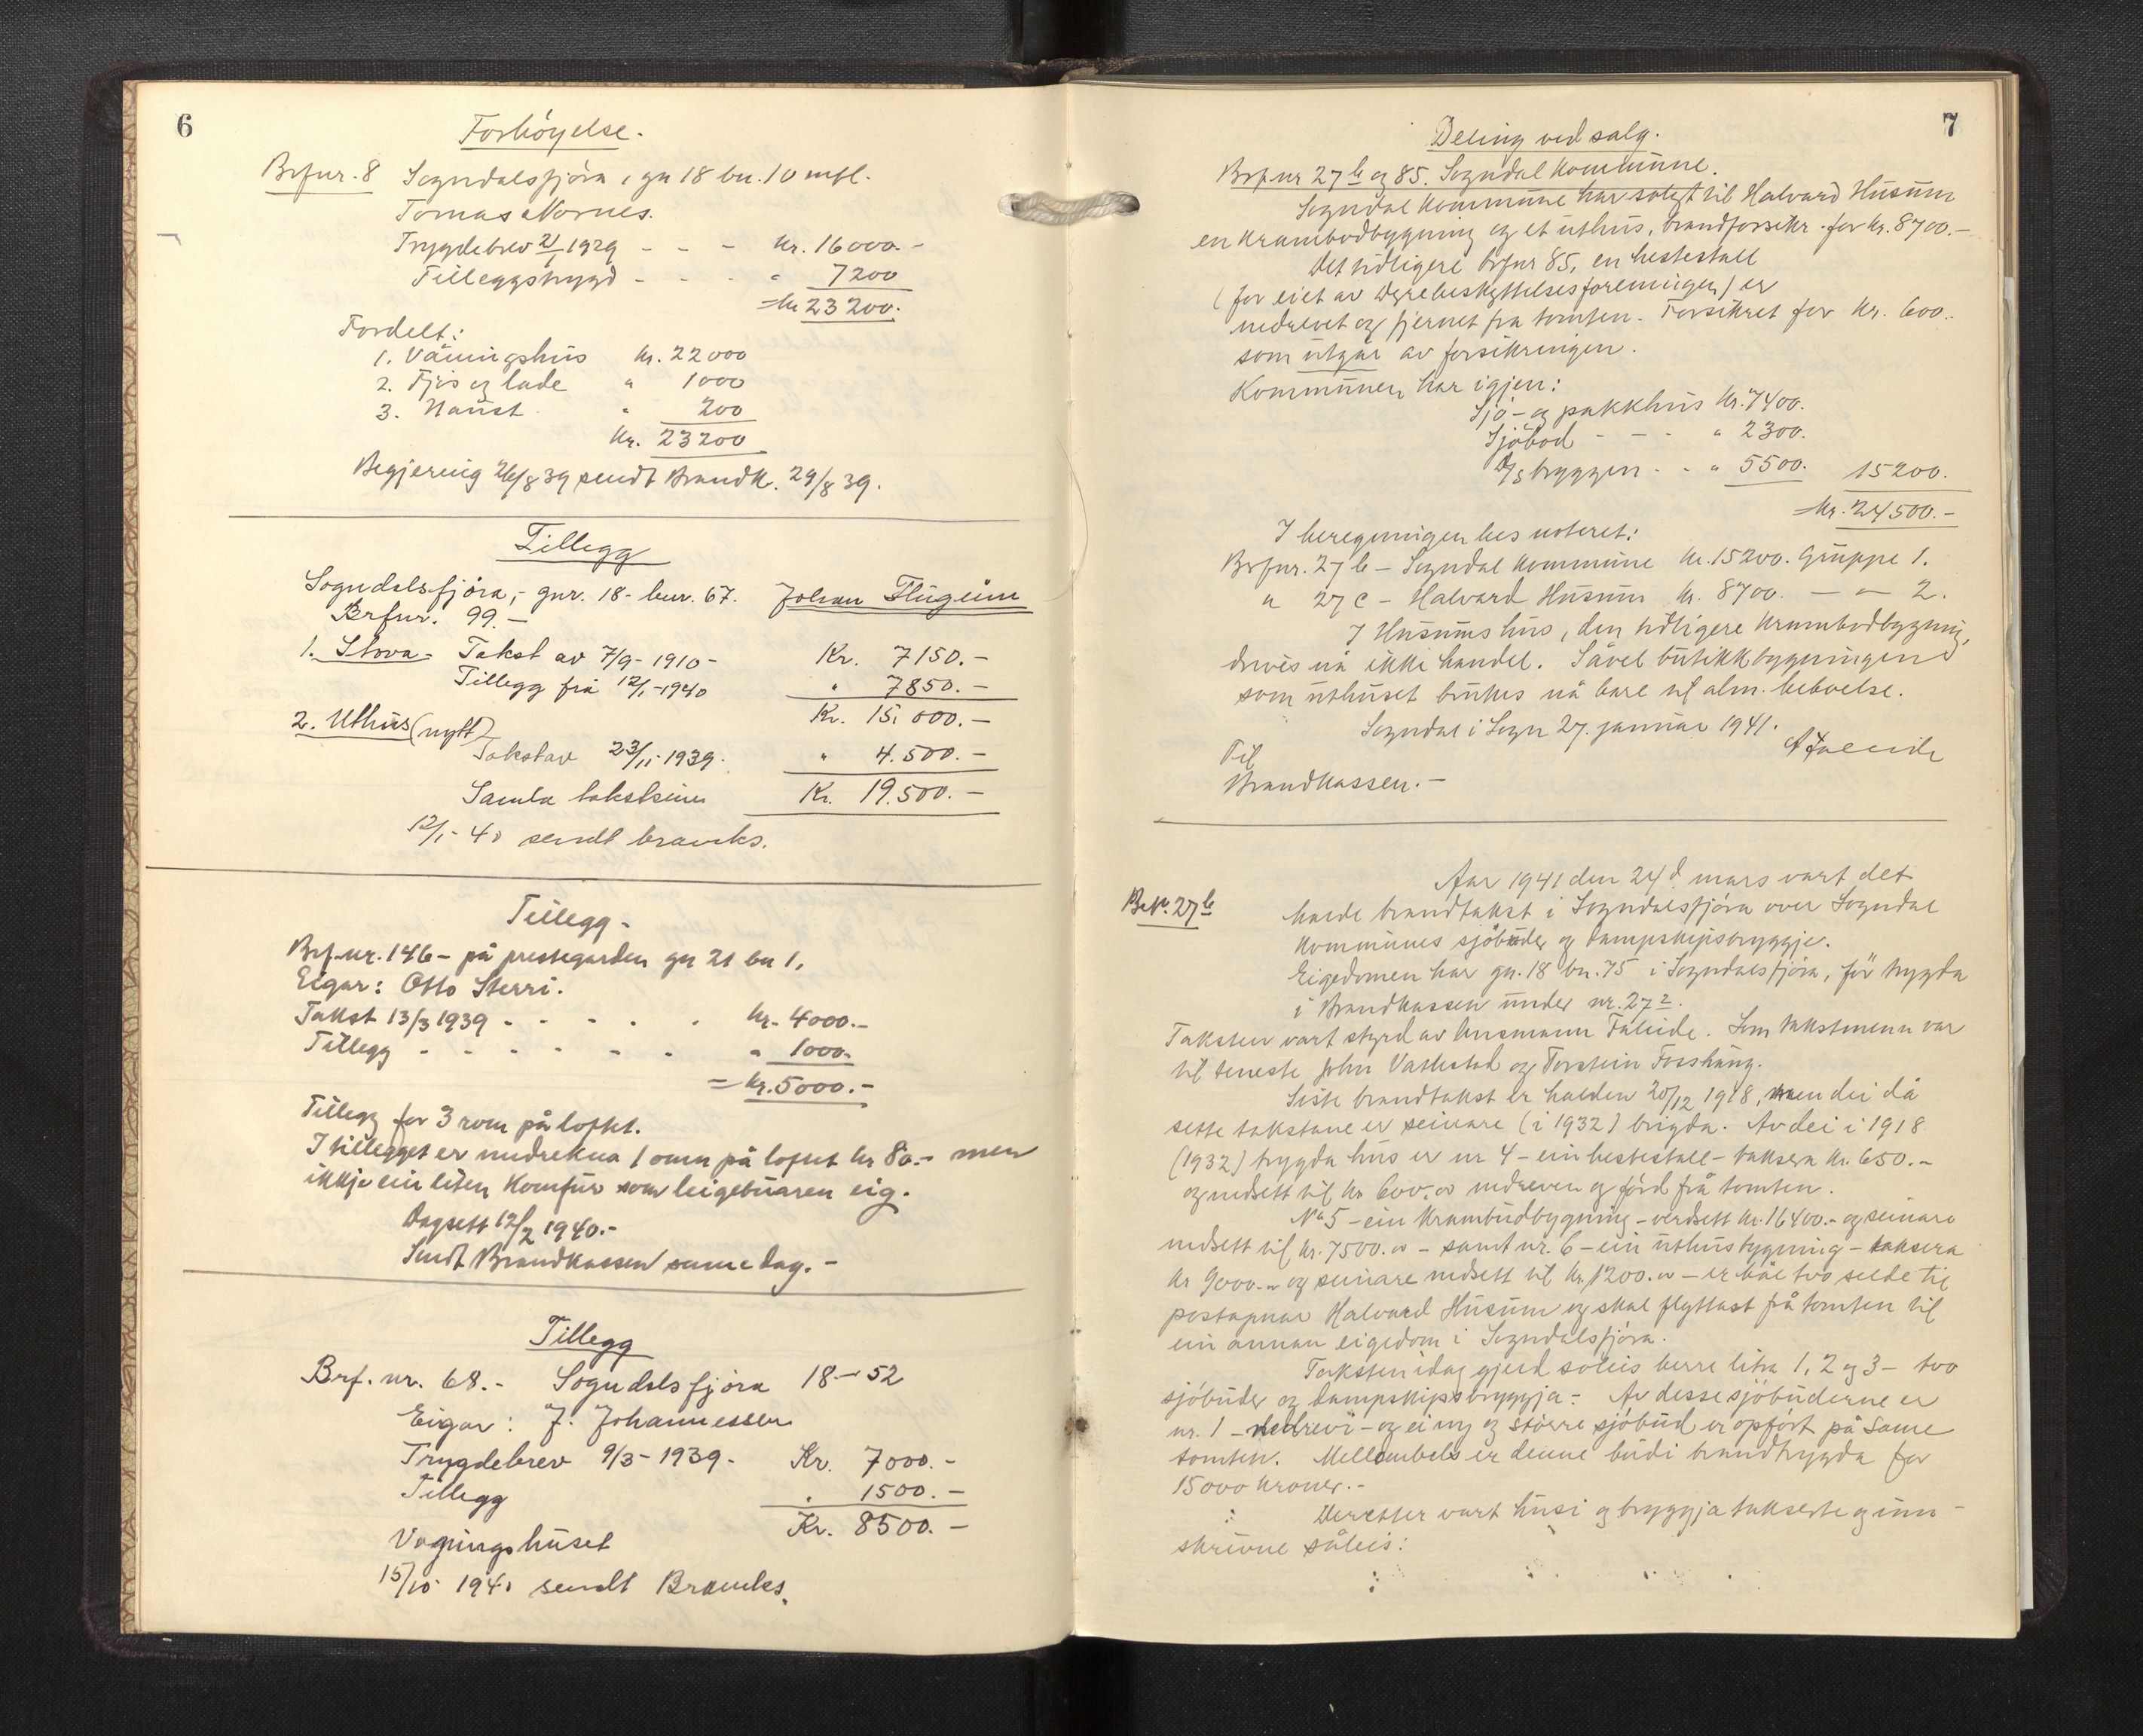 6
Forhöyelse.
Brfnr. 8 Sogndalsfjöra, gn 18 bn. 10 mfl.
Tomas Nornes.
Trygdebrev 2/1 1929 - - - kr. 16000.-
Tilleggstrygd - - - " 7200
= kr 23200.
Fordelt:
1. Våningshus kr. 22000
2. Fjös og lade " 1000
3. Naust " 200
kr. 23200
Begjering 26/8 39 sendt Brandk. 29/8 39.
Tillegg
Sogndalsfjöra,- gnr. 18- bnr. 67. Johan Flugeim
Brfnr. 99.-
1. Stova- Takst av 7/9-1910- Kr. 7150.-
Tillegg frå 12/1-1940 " 7850.-
Kr. 15.000.-
2. Uthus (nytt)
Takst av 23/11-1939. " 4.500.-
Samla takstsum Kr. 19.500.-
12/1-40 sendt brandks.
Tillegg-
Brf.nr. 146- på prestegarden gn 21 bn 1,
Eigar: Otto Sterri.
Takst 13/3 1939 - - - - - kr. 4000.-
Tillegg - - - - - - " 1000.
= kr. 5000.-
Tillegg for 3 rom på loftet.
I tillegget er medrekna 1 omn på loftet kr 80.- men
ikkje ein liten komfur som leigebuaren eig.
Dagsett 12/2 1940.-
Sendt Brandkassen same dag.-
Tillegg
Brf. nr. 68.- Sogndalsfjöra 18-52
Eigar: J. Johannessen
Trygdebrev 9/3-1939- Kr. 7000.-
Tillegg " 1500.-
Kr. 8500.-
Vaaningshuset
15/10 1940 sendt Brandks.
7
Deling ved salg.
Brf.nr 27b og 85. Sogndal kommune.
Sogndal kommune har solgt til Halvard Husum
en krambodbygning og et uthus, brandforsikr. for kr. 8700.-
Det tidligere brfnr 85, en hestestall
(for eiet av Dyrebeskyttelsesforeningen) er
nedrevet og fjernet fra tomten. Forsikret for kr. 600.
som utgår av forsikringen.
Kommunen har igjen:
Sjö- og pakkhus kr. 7400.
Sjöbod - - - " 2300.
D/S bryggen - - " 5500. 15200.
= kr. 24500.-
I beregningen bes noteret:
Brfnr. 27b - Sogndal kommune kr. 15200. Gruppe 1.
" 27c - Halvard Husum kr. 8700. - " - 2.
I Husums hus, den tidligere krambodbygning,
drives nå ikke handel. Såvel butikkbygningen
som uthuset brukes nå bare til alm. beboelse.
Sogndal i Sogn 27. januar 1941.
A Faleide
Til
Brandkassen.-
Br.Nr. 27b
Aar 1941 den 24d. mars vart det
halde brandtakst i Sogndalsfjöra over Sogndal
kommunes sjöbuder og dampskipsbryggje.
Eigedomen har gn. 18 bn. 75 i Sogndalsfjöra, för trygda
i Brandkassen under nr. 27 2.
Taksten vart styrd av lensmann Faleide. Som takstmenn var
til teneste John Vatlestad og Torstein Fosshaug.
Siste brandtakst er halden 20/12 1918, men dei då
sette takstane er seinare (i 1932) brigda. Av dei i 1918
(1932) trygda hus er nr 4 - ein hestestall - taksera kr. 650.-
og nedsett til kr 600.oo nedreven og förd frå tomten.
No 5 - ein krambudbygning - verdsett kr. 16400.- og seinare
nedsett til kr. 7500.oo - samt nr. 6 - ein uthusbygning - taksera
kr 9000.- og seinare nedsett til kr. 1200.oo - er båe two selde til
postopnar Halvard Husum og skal flyttast på tomten til
ein annan eigedom i Sogndalsfjöra.
Taksten idag gjeld soleis berre litra 1, 2 og 3 - two
sjöbuder og dampskipsbryggja- Av desse sjöbuderne er
nr. 1 - nedrevi - og ei ny og större sjöbud er opfört på same
tomten. Mellombels er denne budi brandtrygda for
15000 kroner.-
Deretter vart husi og bryggja takserte og inn-
skrivne såleis: